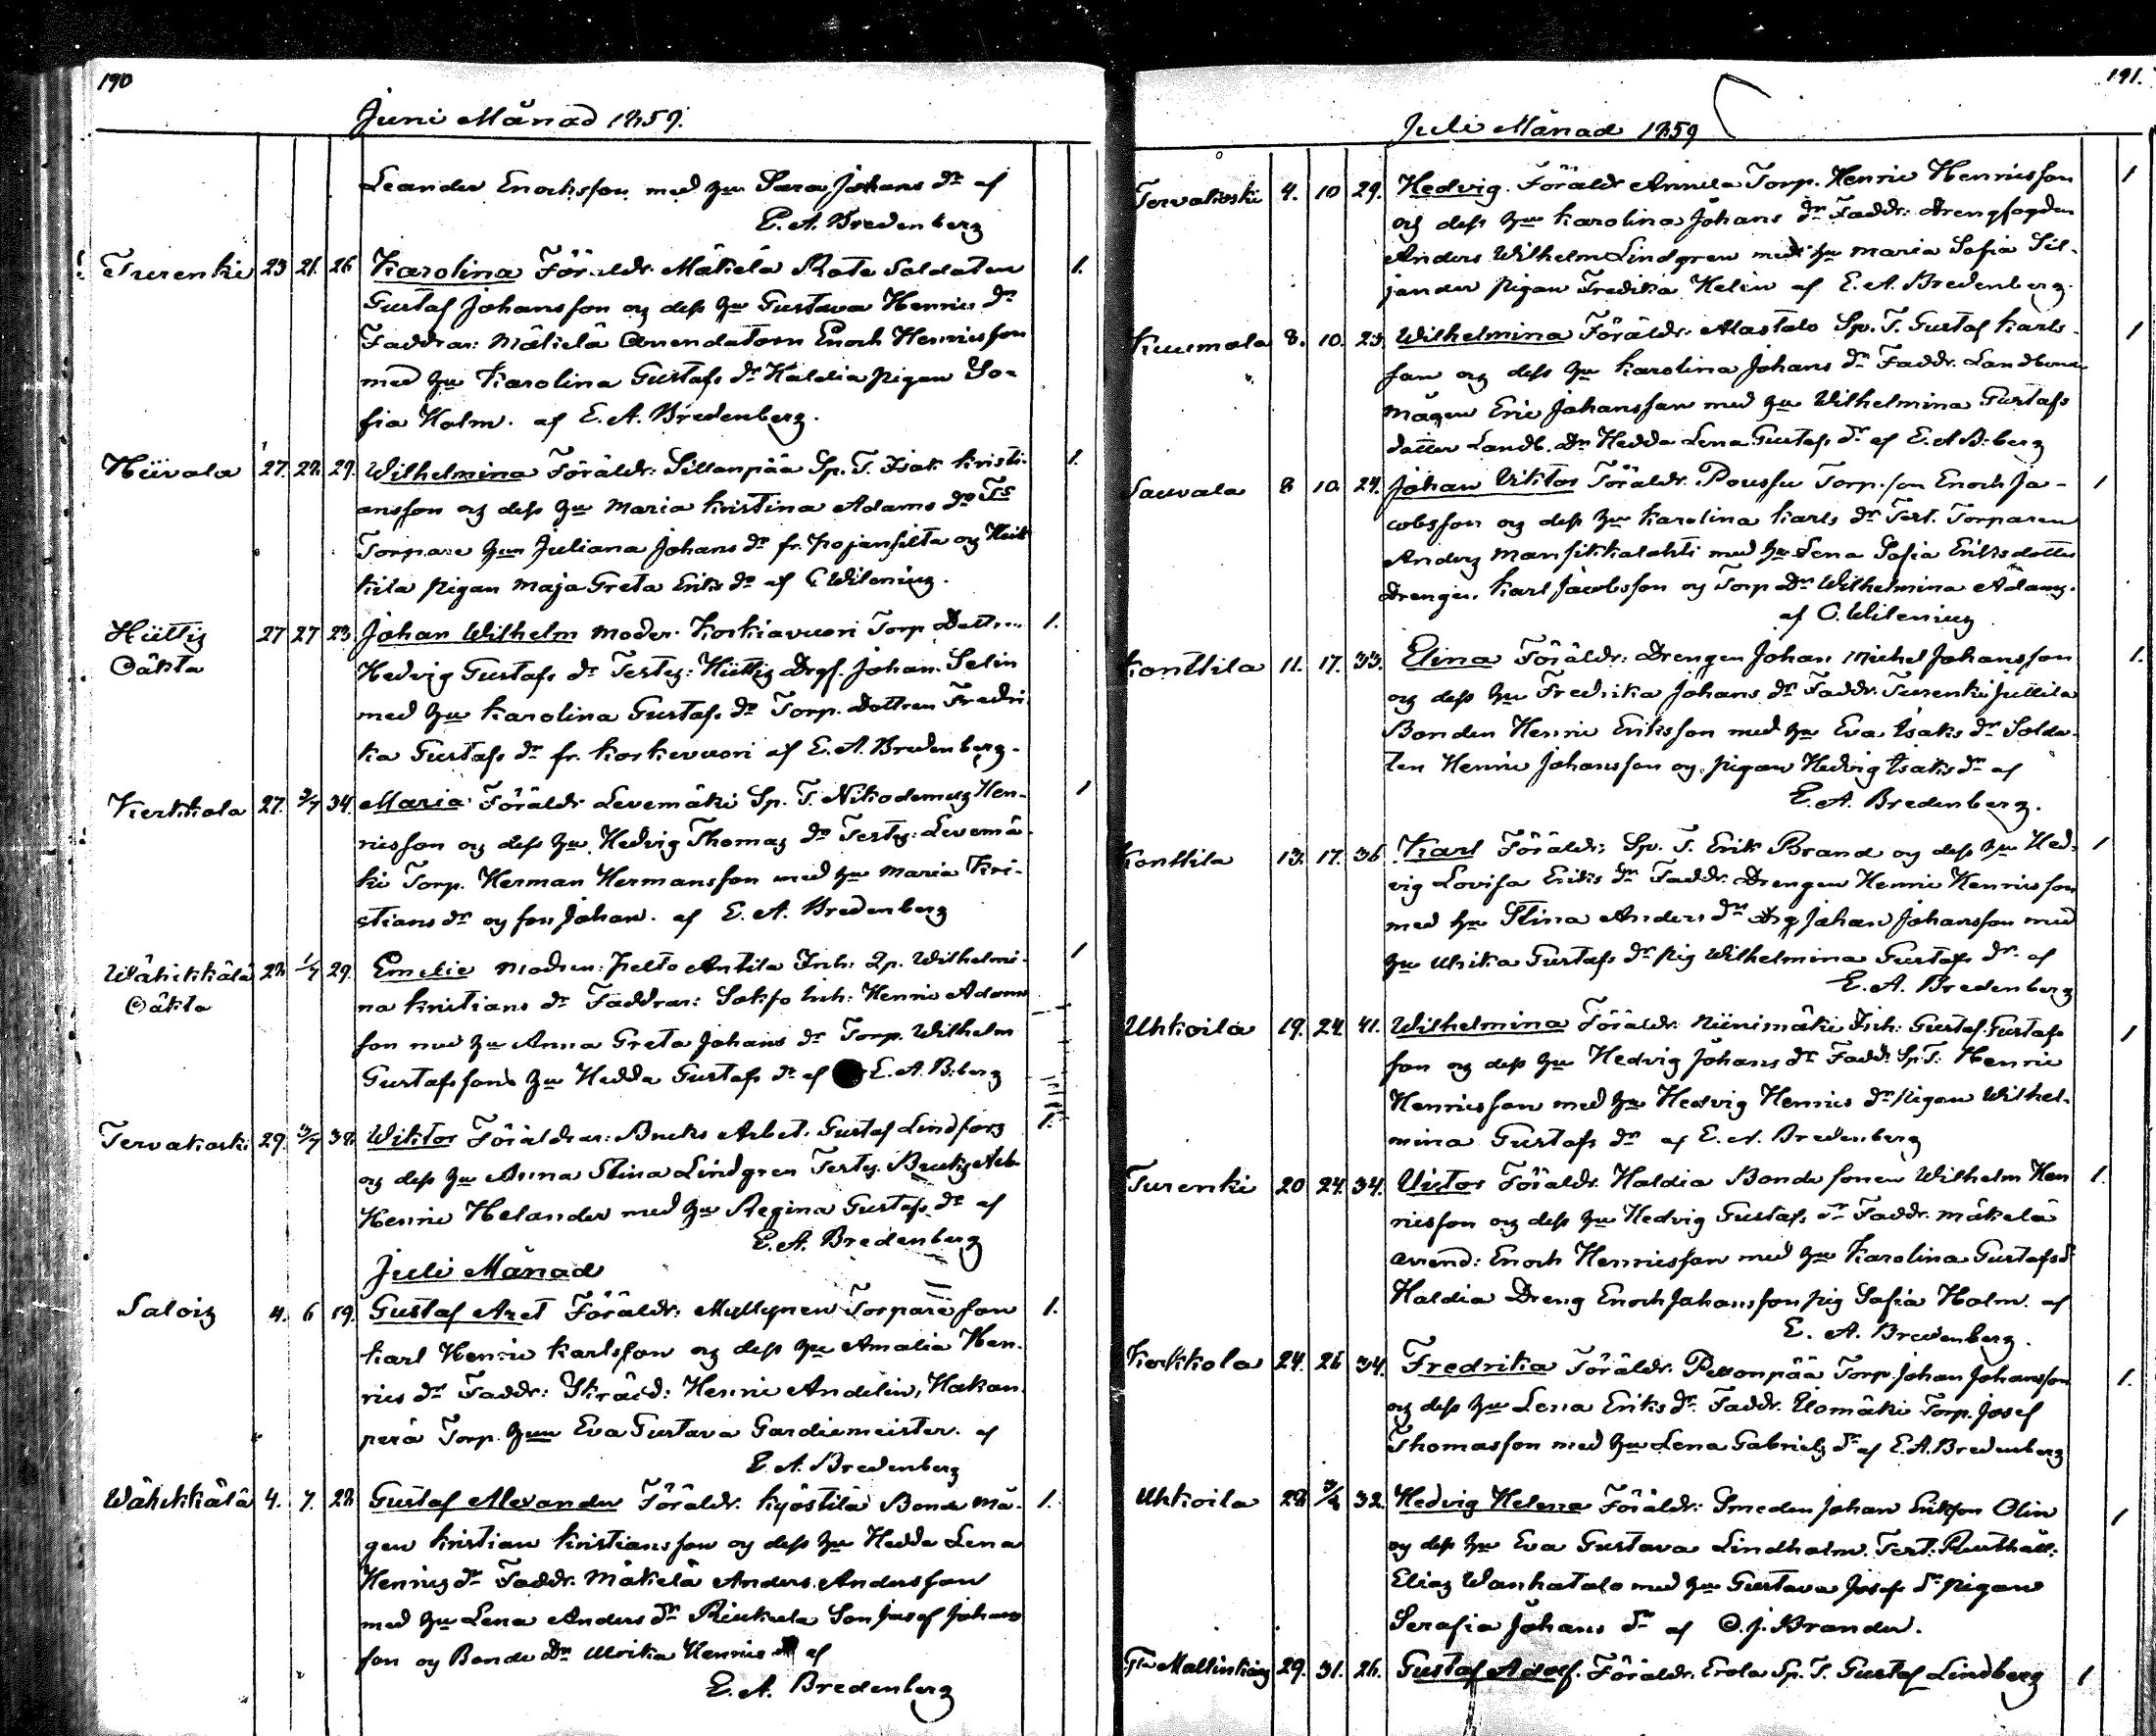 190
Juni Månad 1859.
Leander Enochsson med hu Sara Johans dr af
E. A. Bredenberg
Turenki 23 21. 26 Karolina Föräldr. Mäkelä Rote Soldaten 1.
Gustaf Johansson og dess hu Gustava Henrics dr
Faddrar: Mäkelä Arrendatorn Enoch Henricsson
med hu Karolina Gustafs dr Haldia pigan So-
fia Holm. af E. A. Bredenberg.
Hiivala 27. 28. 29. Wilhelmina Föräldr: Sillanpää Sp. T. Isak Kristi- 1.
ansson og dess hu Maria Kristina Adams dr Ts
Torpare hun Juliana Johans dr fr. Pojansilta og Heik
kila pigan Maja Greta Eriks dr af C. Wilenius.
Hüttis 27 27 23. Johan Wilhelm Moder. Korkiavuori Torp Dottren 1.
Oäkta Hedvig Gustafs dr Testes: Hüttis Drgf. Johan Selin
med hu Karolina Gustafs dr Torp. Dottren Fredri
ka Gustafs dr fr. Korkevuori af E. A. Bredenberg.
Kerkkola 27. 3/7 34. Maria Föräldr Levemäki Sp. T. Nikodemus Hen- 1
ricsson og dess hu Hedvig Thomas dr Testes: Levemä-
ki Torp. Herman Hermansson med hu Maria Kri-
stians dr og son Johan. af E. A. Bredenberg
Wähikkälä 28 1/7 29. Emelie Modren: Pelto Antila Inh: Qp. Wilhelmi- 1
Oäkta na Kristians dr Faddrar: Sakso Inh: Henric Adams
son med hu Anna Greta Johans dr Torp. Wilhelm
Gustafssons hu Hedda Gustafs dr af E. A. B:berg
Tervakoski 29. 3/7 38. Wiktor Föräldrar: Bruks Arbet. Gustaf Lindfors 1.
og dess hu Anna Stina Lindgren Testes. Bruks Arb
Henric Helander med hu Regina Gustafs dr af
E. A. Bredenberg
Juli Månad
Salois 4. 6 19. Gustaf Axel Föräldr: Myllynen Torpare son 1.
Karl Henric Karlsson og dess hu Amalia Hen-
rics dr Faddr: Skrädd: Henric Andelin, Hakan
perä Torp. hun Eva Gustava Gardiemeister. af
E. A. Bredenberg
Wähikkälä 4. 7. 28 Gustaf Alexander Föräldr. Kyöstilä Bonde må- 1.
gen Kristian Kristiansson og dess hu Hedda Lena
Henrics dr Faddr. Mäkelä Anders Andersson
med hu Lena Anders dr Son Josef Johans
son og Bonde Dr Ulrika Henrics af
E. A. Bredenberg
191.
Juli Månad 1859
Tervakoski 4. 10 29. Hedvig. Föräldr Annila Torp. Henric Henricsson 1
og dess hu Karolina Johans dr Faddr. Drengfogden
Anders Wilhelm Lindgren med hu Maria Sofia Sil-
jander pigan Fredika Helin af E. A. Bredenberg.
Kuumola 8. 10. 23. Wilhelmina Föräldr. Alastalo Sp. T. Gustaf Karls- 1
son og dess hu Karolina Johans dr Faddr. Landbonde
mågen Eric Johansson med hu Wilhelmina Gustafs
dotter Landb. Dr Hedda Lena Gustafs dr af E. A. B:berg
Sauvala 8 10 24. Johan Viktor Föräldr. Poussu Torp. son Enoch Ja- 1
cobsson og dess hu Karolina Karls dr Test. Torparen
Anders Mansikkalahti med hu Lena Sofia Eriksdotter
Drengen Karl Jacobsson og Torp Dr Wilhelmina Adams.
af C. Wilenius
Konttila 11. 17. 33. Elina Föräldr: Drengen Johan Michel Johansson 1.
og dess hu Fredrika Johans dr Faddr. Turenki Jullila
Bonden Henric Eriksson med hu Eva Isaks dr Solda-
ten Henric Johansson og pigan Hedvig Isaks dr af
E. A. Bredenberg.
Konttila 13. 17. 36. Karl Föräldr: Sp. T. Erik Brand og dess hu Hed- 1
vig Lovisa Eriks dr Faddr. Drengen Henric Henricsson
med hu Stina Anders dr Drg Johan Johansson med
hu Ulrika Gustafs dr pig Wilhelmina Gustafs dr af
E. A. Bredenberg
Uhkoila 19. 24. 41. Wilhelmina Föräldr. Niinimäki Inh: Gustaf Gustafs 1
son og dess hu Hedvig Johans dr Faddr Sp. T. Henric
Henricsson med hu Hedvig Henrics dr pigan Wilhel-
mina Gustafs dr af E. A. Bredenberg
Turenki 20 24. 34. Victor Föräldr. Haldia Bonde sonen Wilhelm Hen 1.
ricsson og dess hu Hedvig Gustafs dr Faddr. Mäkelä
arrend: Enoch Henricsson med hu Karolina Gustafs dr
Haldia Dreng Enoch Johansson pig Sofia Holm. af
E. A. Bredenberg.
Kerkkola 24. 26 34. Fredrika Föräldr. Pesonpää Torp. Johan Johansson 1.
og dess hu Lena Eriks dr Faddr. Elomäki Torp. Josef
Thomasson med hu Lena Gabriels dr af E. A. Bredenberg
Uhkoila 28 32. Hedvig Helena Föräldr: Smeden Johan Eriksson Olin 1
og dess hu Eva Gustava Lindholm. Test. Rusthåll:
Elias Wanhatalo med hu Gustava Josefs dr pigan
Serafia Johans dr af O. J. Brander.
29. 31. 26. Gustaf Adolf. Föräldr. Erola Sp. T. Gustaf Lindberg 1